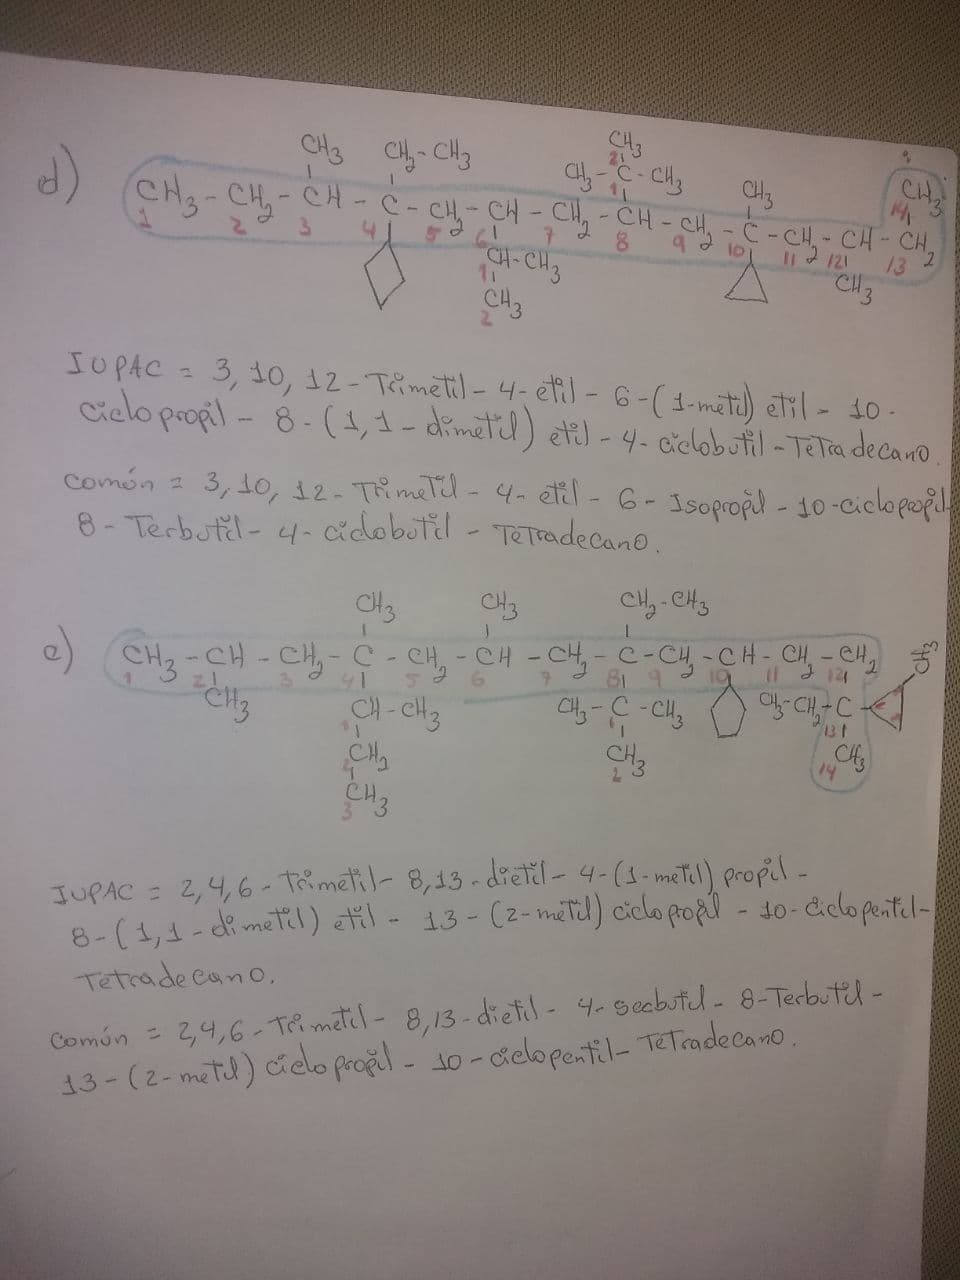 d)
CH3
CH2-CH3
CH3
CH3-C-CH3
CH3
CH3
CH3-CH2-CH-C-CH2-CH-CH2-CH-CH2-C-CH2-CH-CH2
1 2 3 4 5 6 7 8 9 10 11 12 13 14
CH-CH3
CH3
CH3
IUPAC = 3, 10, 12-Trimetil-4-etil-6-(1-metil) etil-10-
Ciclopropil-8-(1,1-dimetil) etil-4-ciclobutil-Tetradecano.
común = 3, 10, 12-Trimetil-4-etil-6-Isopropil-10-ciclopropil-
8-Terbutil-4-ciclobutil-Tetradecano.
e)
CH3
CH3
CH2-CH3
CH3
CH3-CH-CH2-C-CH2-CH-CH2-C-CH2-CH-CH2-CH2
1 2 3 4 5 6 7 8 9 10 11 12
CH3
CH-CH3
CH3-C-CH3
CH3-CH2-C
13
CH2
CH3
CH3
2
14
CH3
3
IUPAC = 2,4,6-Trimetil-8,13-dietil-4-(1-metil) propil-
8-(1,1-dimetil) etil-13-(2-metil) ciclopropil-10-ciclopentil-
Tetradecano.
común = 2,4,6-Trimetil-8,13-dietil-4-secbutil-8-Terbutil-
13-(2-metil) ciclopropil-10-ciclopentil-Tetradecano.